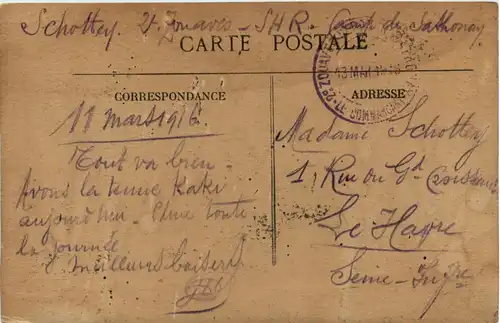 Schottey. 2e Zouaves - SHR - Camp de Sathonay
CARTE POSTALE
2e ZOUAVES
13 MAI 1916
LE COMMANDANT
CORRESPONDANCE
ADRESSE
11 mars 1916.
Tout va bien -
Avons la tenue Kaki
aujourd'hui. toute
la journée
Meilleurs baisers
Madame Schottey
1, Rue du Gd Croissant
Le Havre
Seine-Infre